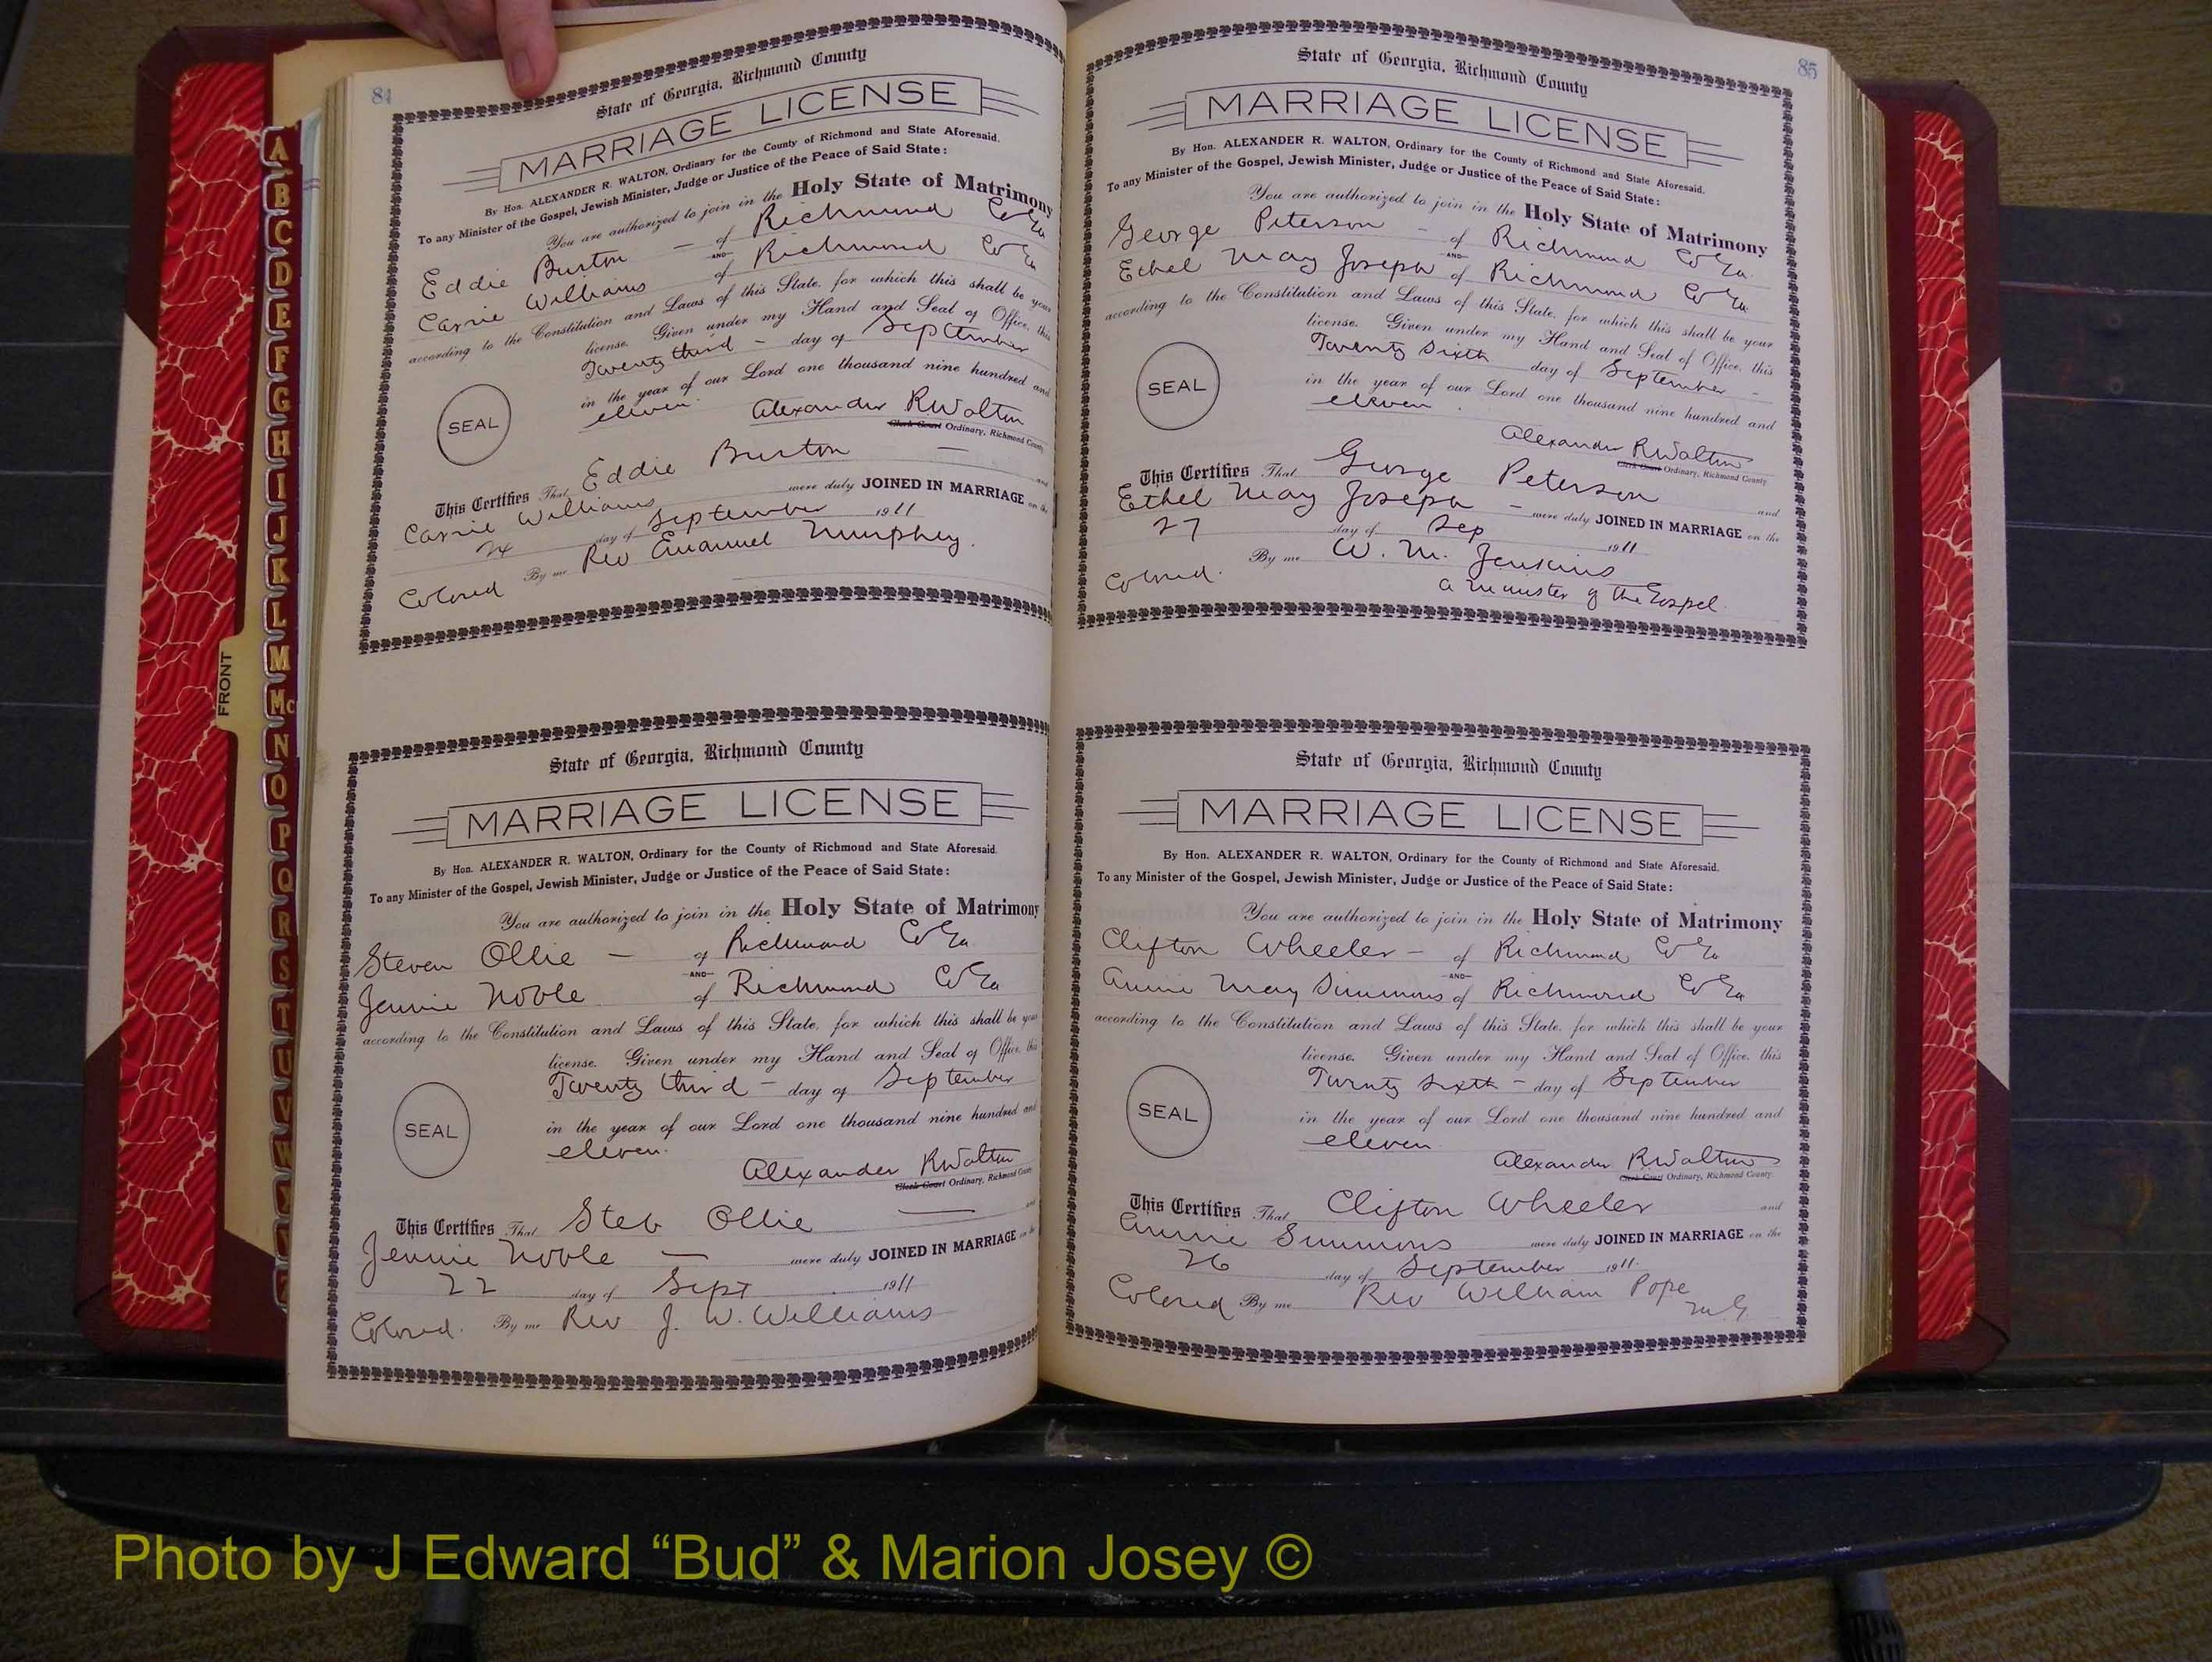 84
State of Georgia, Richmond County
MARRIAGE LICENSE
By Hon. ALEXANDER R. WALTON, Ordinary for the County of Richmond and State Aforesaid.
To any Minister of the Gospel, Jewish Minister, Judge or Justice of the Peace of Said State:
You are authorized to join in the Holy State of Matrimony
Eddie Burton — of Richmond Co Ga
AND
Carrie Williams of Richmond Co Ga
according to the Constitution and Laws of this State, for which this shall be your
license. Given under my Hand and Seal of Office, this
Twenty third - day of September
in the year of our Lord one thousand nine hundred and
eleven.
SEAL
Alexander R Walton
Clerk Court Ordinary, Richmond County
This Certifies That Eddie Burton — and
Carrie Williams were duly JOINED IN MARRIAGE on the
24 day of September 1911
Colored By me Rev Emanuel Murphey.
State of Georgia, Richmond County
MARRIAGE LICENSE
By Hon. ALEXANDER R. WALTON, Ordinary for the County of Richmond and State Aforesaid.
To any Minister of the Gospel, Jewish Minister, Judge or Justice of the Peace of Said State:
You are authorized to join in the Holy State of Matrimony
Steven Ollie — of Richmond Co Ga
AND
Jennie Noble of Richmond Co Ga
according to the Constitution and Laws of this State, for which this shall be your
license. Given under my Hand and Seal of Office, this
Twenty third - day of September
in the year of our Lord one thousand nine hundred and
eleven.
SEAL
Alexander R Walton
Clerk Court Ordinary, Richmond County
This Certifies That Steb Ollie — and
Jennie Noble — were duly JOINED IN MARRIAGE on the
22 day of Sept 1911
Colored. By me Rev J. W. Williams
85
State of Georgia, Richmond County
MARRIAGE LICENSE
By Hon. ALEXANDER R. WALTON, Ordinary for the County of Richmond and State Aforesaid.
To any Minister of the Gospel, Jewish Minister, Judge or Justice of the Peace of Said State:
You are authorized to join in the Holy State of Matrimony
George Peterson - of Richmond Co Ga.
AND
Ethel May Joseph of Richmond Co Ga.
according to the Constitution and Laws of this State, for which this shall be your
license. Given under my Hand and Seal of Office, this
Twenty Sixth day of September -
in the year of our Lord one thousand nine hundred and
eleven.
SEAL
Alexander R Walton
Clerk Court Ordinary, Richmond County
This Certifies That George Peterson and
Ethel May Joseph - were duly JOINED IN MARRIAGE on the
27 day of Sep 1911
Colored. By me W. M. Jenkins
a Minister of the Gospel.
State of Georgia, Richmond County
MARRIAGE LICENSE
By Hon. ALEXANDER R. WALTON, Ordinary for the County of Richmond and State Aforesaid.
To any Minister of the Gospel, Jewish Minister, Judge or Justice of the Peace of Said State:
You are authorized to join in the Holy State of Matrimony
Clifton Wheeler - of Richmond Co Ga
AND
Annie May Simmons of Richmond Co Ga
according to the Constitution and Laws of this State, for which this shall be your
license. Given under my Hand and Seal of Office, this
Twenty sixth - day of September
in the year of our Lord one thousand nine hundred and
eleven
SEAL
Alexander R Walton
Clerk Court Ordinary, Richmond County
This Certifies That Clifton Wheeler and
Annie Simmons were duly JOINED IN MARRIAGE on the
26 day of September 1911.
Colored By me Rev William Pope
M.G.
A
B
C
D
E
F
G
H
I
J
K
L
M
Mc
N
O
P
Q
R
S
T
U
V
W
FRONT
Photo by J Edward “Bud” & Marion Josey ©